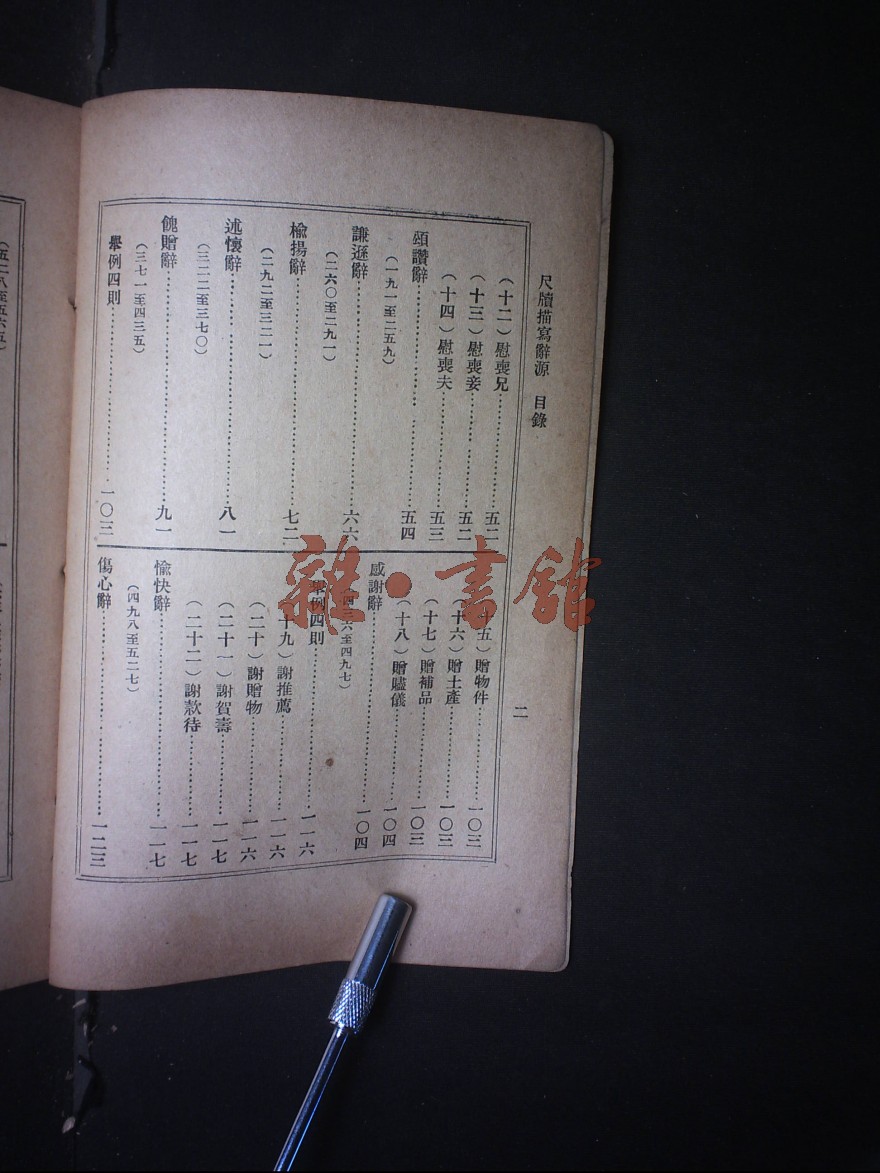 尺牘描寫辭源　目錄
二
（十二）慰喪兄……五二
（十三）慰喪妾……五二
（十四）慰喪夫……五三
頌讚辭……五四
（一九一至二五九）
謙遜辭……六六
（二六〇至二九一）
揄揚辭……七二
（二九二至三二一）
述懷辭……八一
（三二二至三七〇）
餽贈辭……九一
（三七一至四三五）
舉例四則……一〇三
（十五）贈物件……一〇三
（十六）贈土產……一〇三
（十七）贈補品……一〇三
（十八）贈贐儀……一〇四
感謝辭……一〇四
（四三六至四九七）
舉例四則……一一六
（十九）謝推薦……一一六
（二十）謝贈物……一一六
（二十一）謝賀壽……一一七
（二十二）謝款待……一一七
愉快辭……一一七
（四九八至五二七）
傷心辭……一二三
（五二八至五六五）
雜·書館